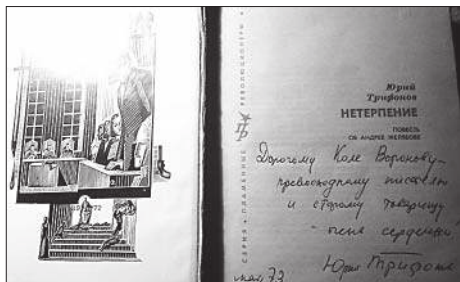 СЕРИЯ • ПЛАМЕННЫЕ РЕВОЛЮЦИОНЕРЫ
Юрий
Трифонов
НЕТЕРПЕНИЕ
ПОВЕСТЬ
ОБ АНДРЕЕ ЖЕЛЯБОВЕ
Дорогому Коле Воронову –
превосходному писателю
и старому товарищу
– очень сердечно
Юрий Трифонов
май 73